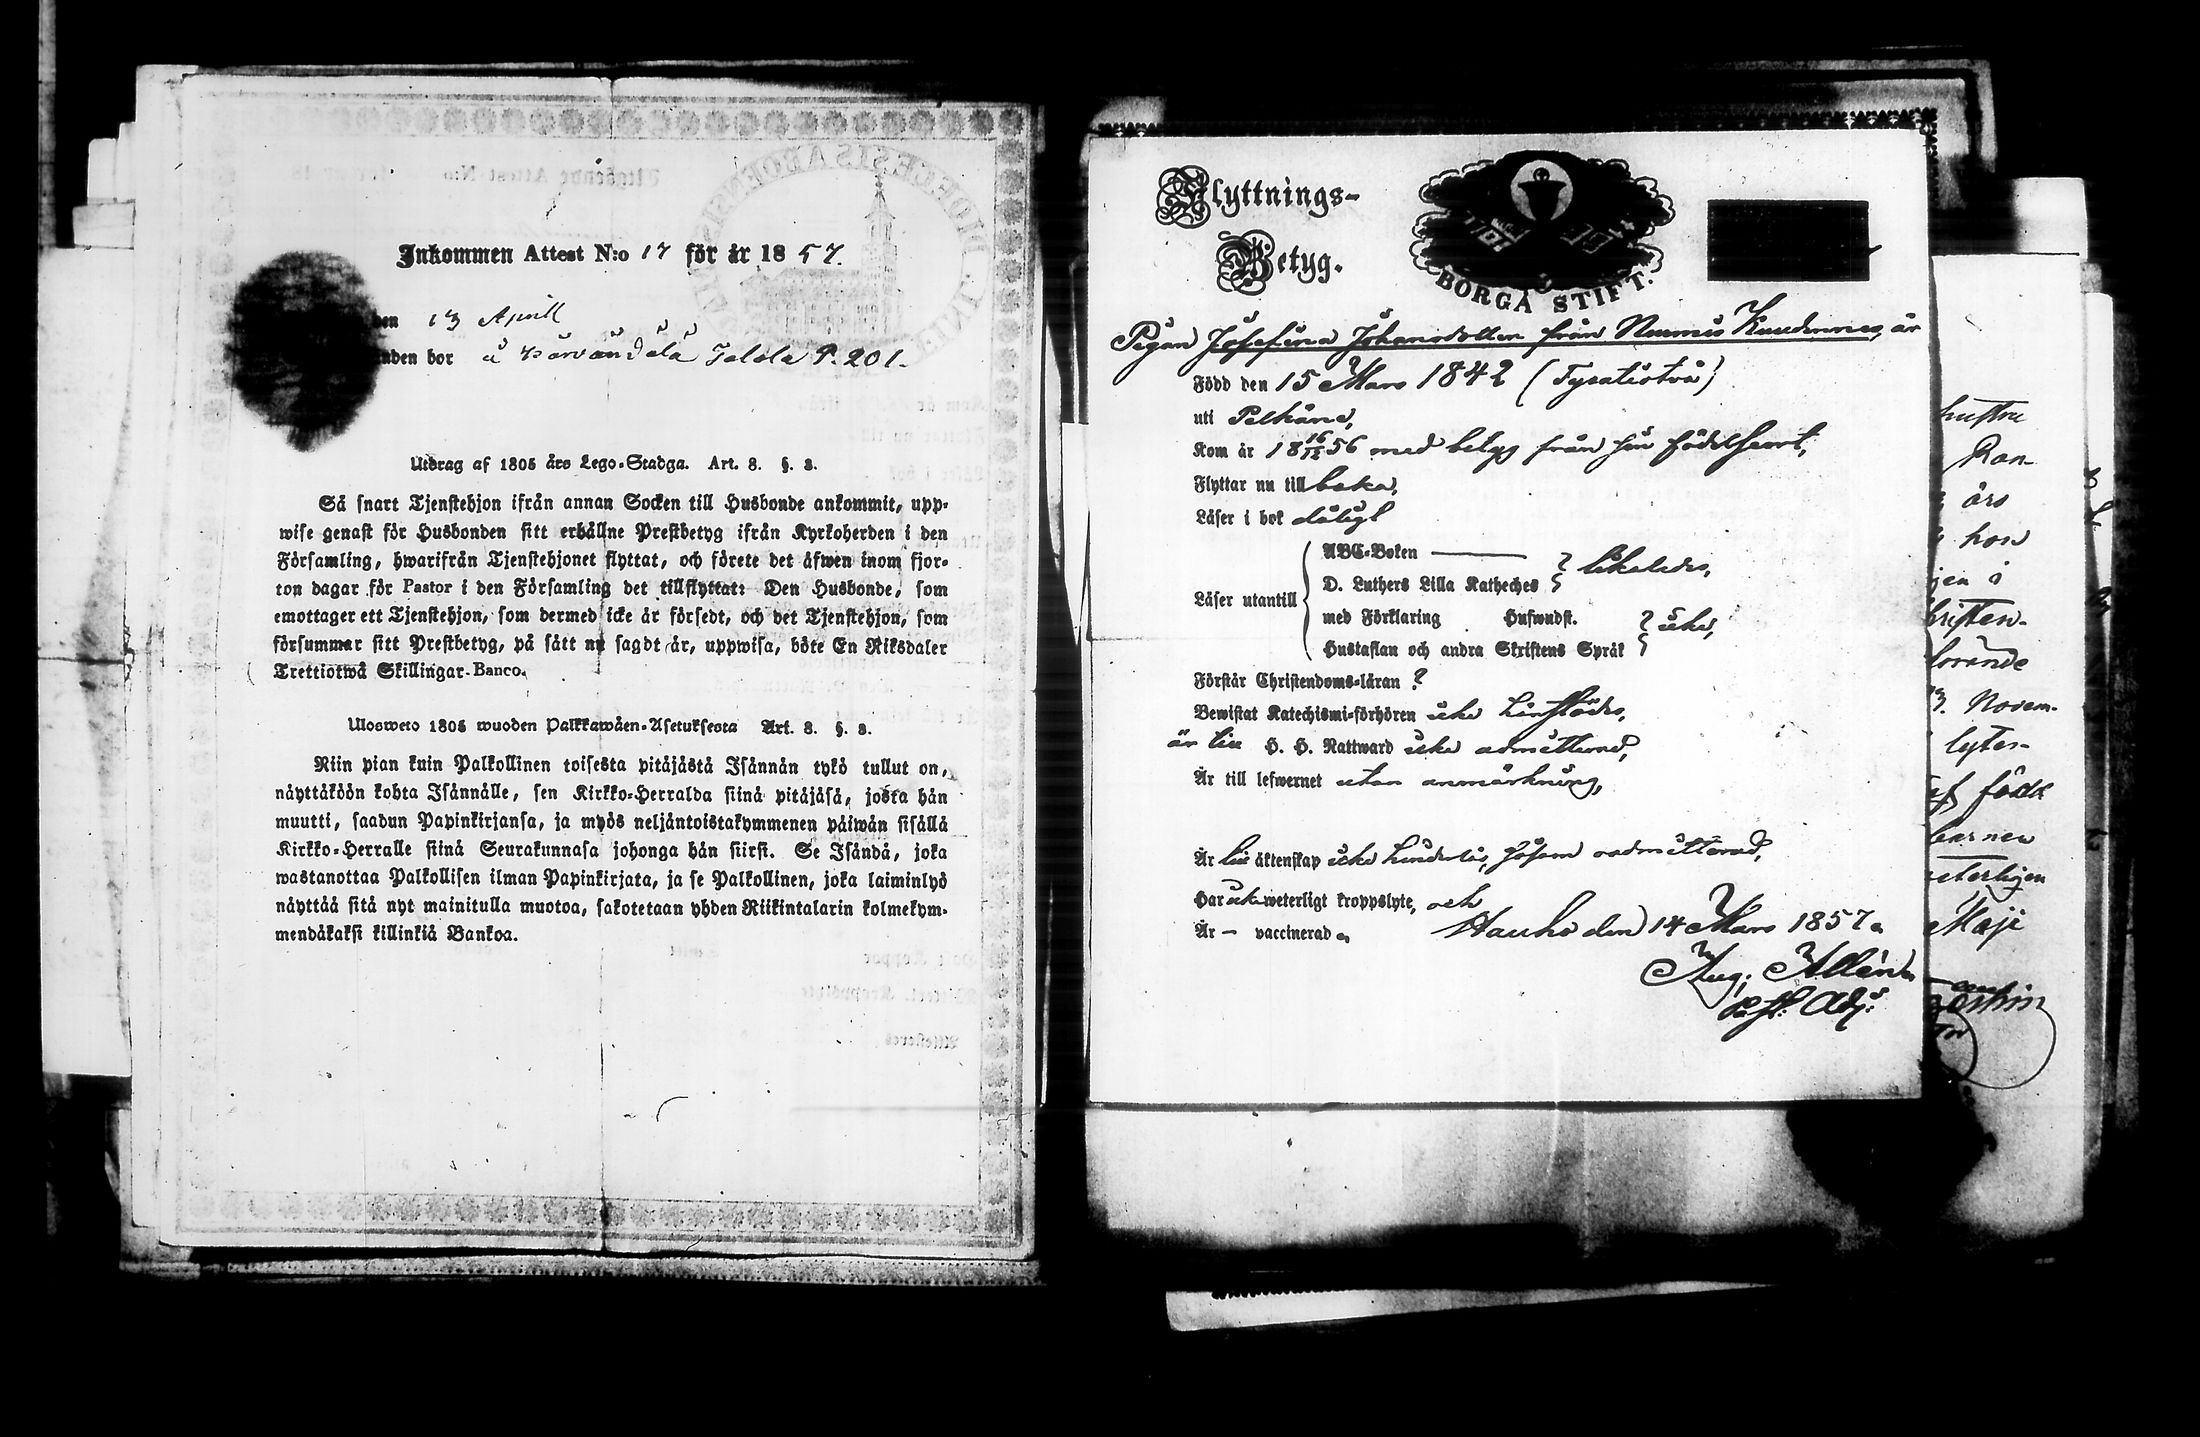 Inkommen Attest N:o 17 för år 1857.
den 13 April
nden bor å Jalola P. 201.
Utdrag af 1805 års Lego-Stadga. Art. 8. §. 8.
Så snart Tjenstehjon ifrån annan Socken till Husbonde ankommit, upp-
wise genast för Husbonden sitt erhållne Prestbetyg ifrån Kyrkoherden i den
Församling, hwarifrån Tjenstehjonet flyttat, och förete det äfwen inom fjor-
ton dagar för Pastor i den Församling det tillflyttat: Den Husbonde, som
emottager ett Tjenstehjon, som dermed icke är försedt, och det Tjenstehjon, som
försummar sitt Prestbetyg, på sätt nu sagdt är, uppwisa, böte En Riksdaler
Trettiotwå Skillingar Banco.
Ulosweto 1805 wuoden Palkkawäen-Asetuksesta Art. 8. §. 8.
Niin pian kuin Palkollinen toisesta pitäjästä Isännän tykö tullut on,
näyttäköön kohta Isännälle, sen Kirkko-Herralda siinä pitäjäsä, josta hän
muutti, saadun Papinkirjansa, ja myös neljäntoistakymmenen päiwän sisällä
Kirkko-Herralle siinä Seurakunnasa johonga hän siirsi. Se Isändä, joka
wastanottaa Palkollisen ilman Papinkirjata, ja se Palkollinen, joka laiminlyö
näyttää sitä nyt mainitulla muotoa, sakotetaan yhden Riikintalarin kolmekym-
mendäkaksi killinkiä Bankoa.
Flyttnings-
Betyg.
BORGÅ STIFT.
Pigan Josefina Johansdotter från Nurmis Kuudennes, är
Född den 15 Mars 1842 (Fyratiotvå)
uti Pelkäne,
Kom år 18 16/12 56 med betyg från sin födelseort,
Flyttar nu till
Läser i bok dåligt
Läser utantill
ABC-Boken
D. Luthers Lilla Katheches likaledes,
med Förklaring Hufwudst.
Hustaflan och andra Skriftens Språk icke,
Förstår Christendoms-läran ?
Bewistat Katechismi-förhören icke
är till H. H. Nattward icke admitterad,
Är till lefwernet utan anmärkning,
Är till äktenskap icke hinderlös, såsom oadmitterad,
Har icke weterligt kroppslyte, och
Är — vaccinerad.
Hauho den 14 Mars 1857.
Aug: Allén
Past: Adj:
hustru
Ran-
års
hon
i
risten-
13. Novem-
lyter-
af född
barnen
Maji